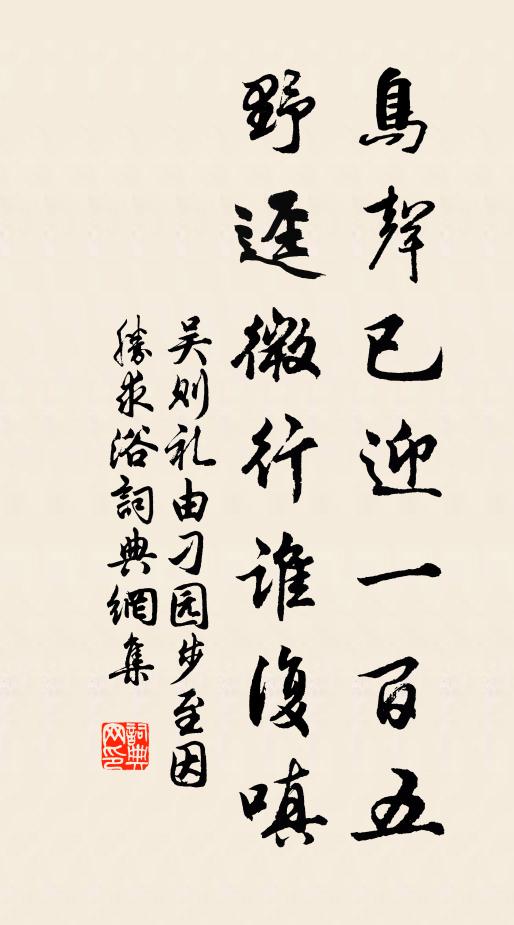 鳥聲已迎一百五
野逕微行誰復嗔
吴则礼由刁园步至因
勝求浴詞典網集
詞典网印